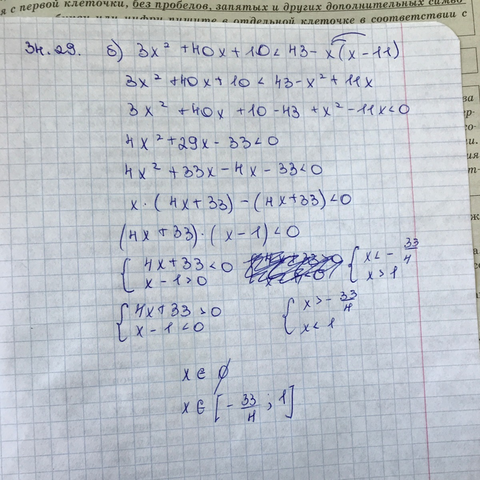 я с первой клеточки, без пробелов, запятых и других дополнительных симво
бкви или цифры пишите в отдельной клеточке в соответствии с
34.29. б) 3x² + 40x + 10 < 43 - x(x - 11)
3x² + 40x + 10 < 43 - x² + 11x
3x² + 40x + 10 - 43 + x² - 11x < 0
4x² + 29x - 33 < 0
4x² + 33x - 4x - 33 < 0
x · (4x + 33) - (4x + 33) < 0
(4x + 33) · (x - 1) < 0
{ 4x + 33 < 0 { x < - 33/4
x - 1 > 0 x > 1
{ 4x + 33 > 0 { x > - 33/4
x - 1 < 0 x < 1
x ∈ ∅
x ∈ [- 33/4 ; 1]